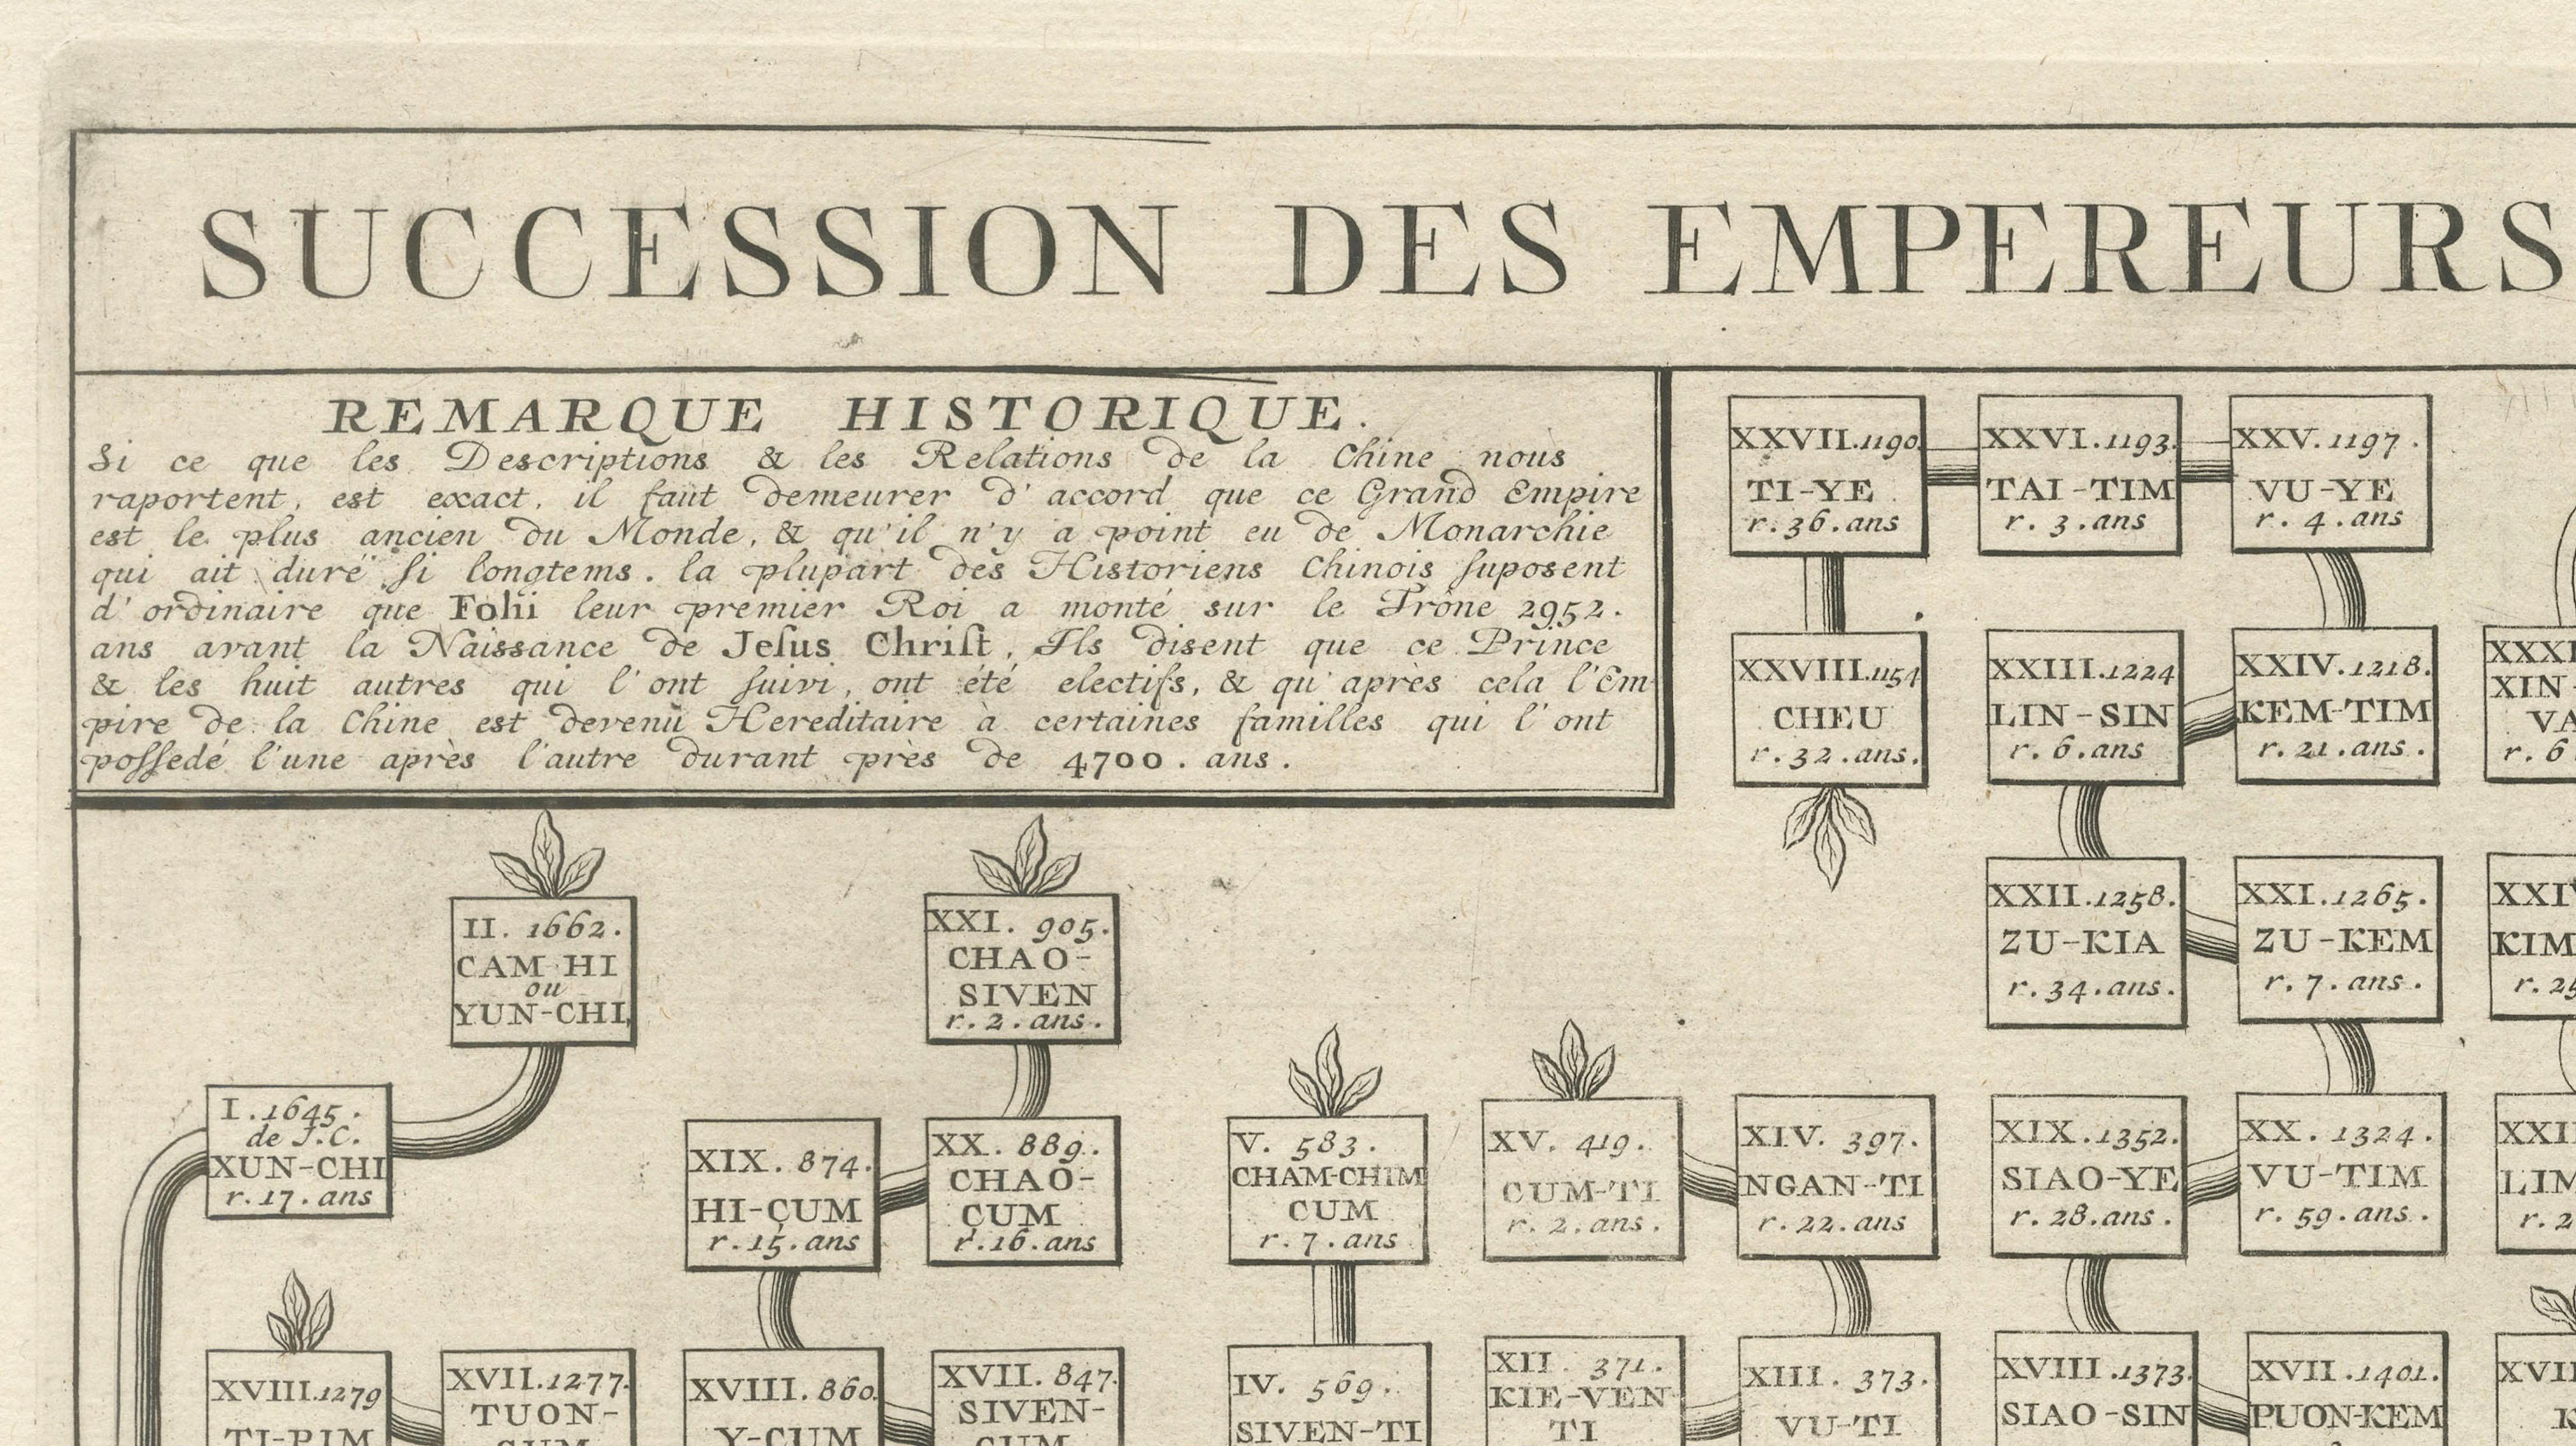 SUCCESSION DES EMPEREURS
REMARQUE HISTORIQUE.
Si ce que les Descriptions & les Relations de la Chine nous
raportent, est exact, il faut demeurer d'accord que ce Grand Empire
est le plus ancien du Monde, & qu'il n'y a point eu de Monarchie
qui ait duré si longtems. la plupart des Historiens Chinois suposent
d'ordinaire que Fohi leur premier Roi a monté sur le Trône 2952.
ans avant la Naissance de Jesus Christ, Ils disent que ce Prince
& les huit autres qui l'ont suivi, ont été electifs, & qu'après cela l'Em-
pire de la Chine est devenu Hereditaire à certaines familles qui l'ont
possedé l'une après l'autre durant près de 4700. ans.
XXVII.1190.
TI-YE
r. 36. ans
XXVI.1193.
TAI-TIM
r. 3. ans
XXV. 1197.
VU-YE
r. 4. ans
XXVIII.1154
CHEU
r. 32. ans.
XXIII.1224
LIN-SIN
r. 6. ans
XXIV.1218.
KEM-TIM
r. 21. ans.
XIN-
r. 6
II. 1662.
CAM HI
ou
YUN-CHI
XXI. 905.
CHAO-
SIVEN
r. 2. ans.
XXII.1258.
ZU-KIA
r. 34. ans.
XXI.1265.
ZU-KEM
r. 7. ans.
KIM
I. 1645.
de J.C.
XUN-CHI
r. 17. ans
XIX. 874.
HI-ÇUM
r. 15. ans
XX. 889.
CHAO-
ÇUM
r. 16. ans
V. 583.
CHAM-CHIM
CUM
r. 7. ans
XV. 419.
CUM-TI
r. 2. ans.
XIV. 397.
NGAN-TI
r. 22. ans
XIX.1352.
SIAO-YE
r. 28. ans.
XX. 1324.
VU-TIM
r. 59. ans.
XXI
LIM
r. 2
XVIII.1279
TI-PIM
XVII.1277.
TUON-
CUM
XVIII. 860.
Y-CUM
XVII. 847.
SIVEN-
CUM
IV. 569.
SIVEN-TI
XII. 371.
KIE-VEN
TI
XIII. 373.
VU-TI
XVIII.1373.
SIAO-SIN
XVII.1401.
PUON-KEM
XVII